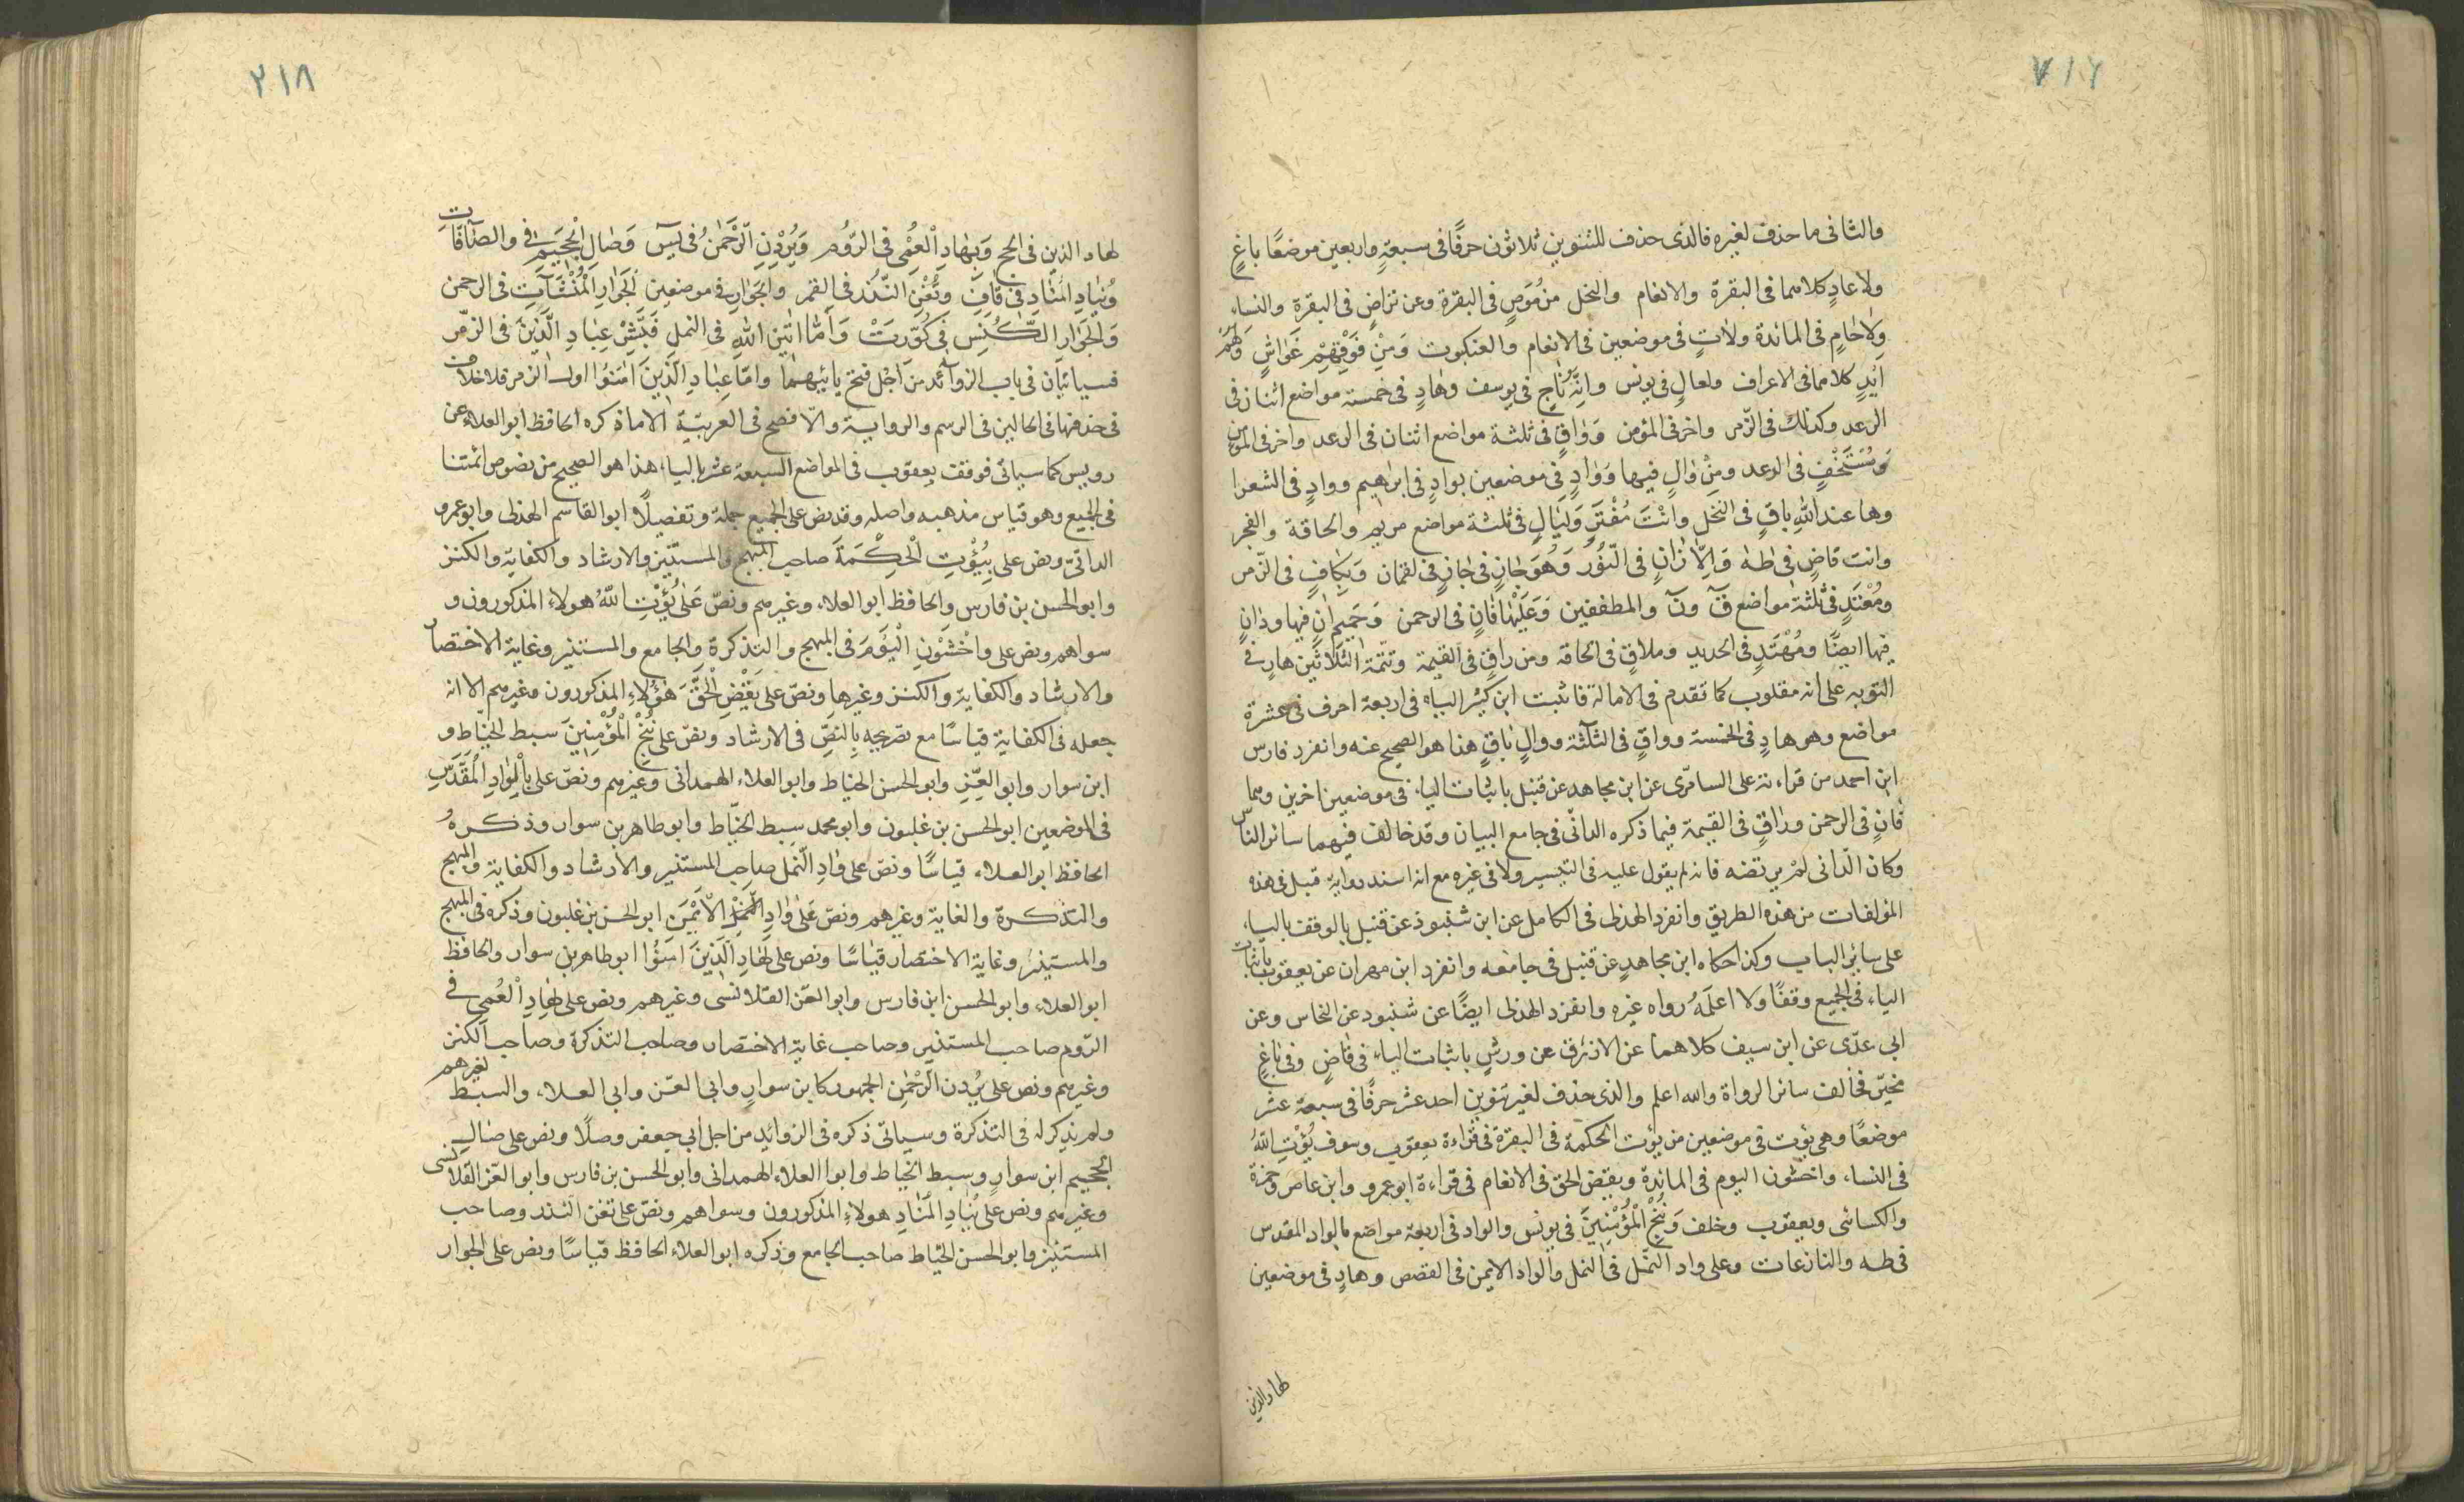 ٧١٢
والثانى ما حذف لغيره فالذى حذف للتنوين ثلاثون حرفًا فى سبعةٍ واربعين موضعًا باغٍ
ولا عادٍ كلاهما فى البقرة والانعام والنحل من مُوصٍ فى البقرة وعن تراضٍ فى البقرة والنساء
ولا حامٍ فى المائدة ولآتٍ فى موضعين فى الانعام والعنكبوت ومن فوقهم غواشٍ ولهم
ايدٍ كلاهما فى الاعراف ولعالٍ فى يونس وانّه ناجٍ فى يوسف وهادٍ فى خمسة مواضع اثنان فى
الرعد وكذلك فى الزّمر واخر فى المؤمن وواقٍ فى ثلثة مواضع اثنان فى الرعد واخر فى المؤمن
ومستخفٍ فى الرعد ومن والٍ فيها ووادٍ فى موضعين بوادٍ فى ابرٰهيم ووادٍ فى الشعرا
وما عند الله باقٍ فى النحل وانت مفترٍ وليالٍ فى ثلثة مواضع مريم والحاقة والفجر
وانت قاضٍ فى طه والّا زانٍ فى النّور وهو جازٍ فى جازٍ فى لقمان وبكافٍ فى الزّمر
ومعتدٍ فى ثلثة مواضع قٓ ونٓ والمطففين وعليها فانٍ فى الرحمن وحميم اٰنٍ فيها ودانٍ
فيها ايضًا ومهتدٍ فى الحديد وملاقٍ فى الحاقه ومن راقٍ فى القيمة وتتمة الثلاثين هارٍ فى
التوبه على انه مقلوب كما تقدم فى الامالة فاثبت ابن كثير الياء فى اربعة احرف فى عشرة
مواضع وهو هادٍ فى الخمسة وواقٍ فى الثلثة ووالٍ باقٍ هذا هو الصحيح عنه وانفرد فارس
ابن احمد من قراءته على السامرّى عن ابن مجاهد عن قنبل باثبات الياء فى موضعين اخرين وهما
فانٍ فى الرحمن وراقٍ فى القيمة فيما ذكره الدانّى فى جامع البيان وقد خالف فيهما سائر الناس
وكان الدّانى لم يرتضه فانه لم يقول عليه فى التيسير ولا فى غيره مع انه اسند رواية قنبل فى هذه
المؤلفات من هذه الطريق وانفرد الهذلى فى الكامل عن ابن شنبوذ عن قنبل بالوقف بالياء
على سائر الباب وكذا حكاه ابن مجاهدٍ عن قنبل فى جامعه وانفرد ابن مهران عن يعقوب باثبات
الياء فى الجميع وقفًا ولا اعلمهُ رواه غيره وانفرد الهذلى ايضًا عن شنبود عن النخاس وعن
ابى عدّى عن ابن سيف كلاهما عن الازرق عن ورشٍ باثبات الياء فى قاضٍ وفى باغٍ
مخيّر فخالف سائر الرواة والله اعلم والذى حذف لغير تنوين احد عشر حرفًا فى سبعة عشر
موضعًا وهى يؤت فى موضعين من يؤت الحكمة فى البقرة فى قراءة يعقوب وسوف يُؤْتِ اللهُ
فى النساء، واخشون اليوم فى المائدة ويقض الحق فى الانعام فى قراءة ابو عمرو وابن عامر وحمزة
والكسائى ويعقوب وخلف وَنُنْجِ الْمُؤْمِنِينَ فى يونس والواد فى اربعة مواضع بالواد المقدس
فى طه والنازعات وعلى واد النّمل فى النمل والواد الايمن فى القصص وهادٍ فى موضعين
لهاد الذين
٢١٨
لهاد الذين فى الحج وَبِهَادِ الْعُمْىِ فى الرّوم وَيُرِدْنِ الرَّحْمٰنُ فى يسٓ وَصَالِ الْجَحِيمِ فى والصآفّات
وينادِ المنادِ فى قاف وتُغْنِ النّذر فى القمر والجوارِ فى موضعين الجوار المنشئآت فى الرحمن
والجوار الكنّس فى كوّرت وامّا اٰتٰنِ الله فى النمل فبشّر عباد الَّذين فى الزمّر
فسياتيان فى باب الزوآئد من اجل فتح يائيهما وامّا عباد الّذين اٰمنوا اول الزمر فلا خلاف
فى حذفها فى الحالين فى الرسم والرواية والافصح فى العربيّة الا ما ذكره الحافظ ابو العلاء عن
رويس كما سيأتى فوقف يعقوب فى المواضع السبعة عشر بالياء هذا هو الصحيح من نصوص ائمتنا
فى الجميع وهو قياس مذهبه واصله وقد نص على الجميع جملة وتفصيلًا ابو القاسم الهذلى وابو عمرو
الدانّى ونص على يُؤْتِ الْحِكْمَةَ صاحب المبهج والمستنير والارشاد والكفاية والكنز
وابو الحسن بن فارس والحافظ ابو العلاء، وغيرهم ونصّ على يُؤْتِ اللهُ هولاء المذكورون و
سواهم ونص على وَاخْشَوْنِ الْيَوْمَ فى المبهج والتذكرة والجامع والمستنير وغاية الاختصار
والارشاد والكفاية والكنز وغيرها ونصّ على يَقْضِ الْحَقَّ هؤلاء المذكورون وغيرهم الا انه
جعله فى الكفاية قياسًا مع تصريحه بالنصّ فى الارشاد ونصّ على نُنْجِ الْمُؤْمِنِينَ سبط الخيّاط و
ابن سوار وابو العزّ وابو الحسن الخياط وابو العلاء الهمدانى وغيرهم ونصّ على بِالْوَادِ الْمُقَدَّسِ
فى الموضعين ابو الحسن بن غلبون وابو محمد سبط الخيّاط وابو طاهر بن سوار وذكرهُ
الحافظ ابو العلاء قياسًا ونصّ على وادِ النّمل صاحب المستنير والارشاد والكفاية والمبهج
والتذكرة والغاية وغيرهم ونصّ على واد الْاَيْمَنِ ابو الحسن بن غلبون وذكره فى المبهج
والمستنير وغاية الاختصار قياسًا ونص على لَهَادِ الَّذِينَ اٰمَنُوا ابو طاهر بن سوار والحافظ
ابو العلاء وابو الحسن ابن فارس وابو العزّ القلانسى وغيرهم ونص على بهادِ العُمى فى
الرّوم صاحب المستنير وصاحب غاية الاختصار وصاحب التذكرة وصاحب الكنز
وغيرهم ونص على يُردن الرَّحمٰن الجمهور كابن سوارٍ وابى العزّ وابى العلاء، والسبط لغيرهم
ولم يذكر له فى التذكرة وسيأتى ذكره فى الزوايد من اجل ابى جعفر وصلًا ونص على صَالِ
الجحيم ابن سوارٍ وسبط الخياط وابو العلاء الهمدانى وابو الحسن بن فارس وابو العزّ القلانسى
وغيرهم ونص على يُنَادِ الْمُنَادِ هولاءِ المذكورون وسواهم ونصّ على تغن النذر وصاحب
المستنير وابو الحسن الخيّاط صاحب الجامع وذكره ابو العلاء الحافظ قياسًا ونص على الجوار